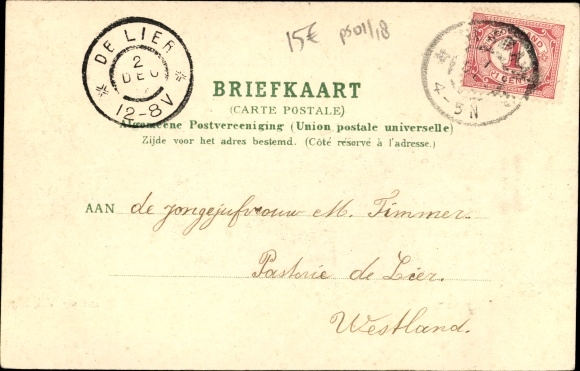 15€ ps011/18
DE LIER
2
DEC
12-8V
NEDERLAND
1
4-5N
BRIEFKAART
(CARTE POSTALE)
Algemeene Postvereeniging (Union postale universelle)
Zijde voor het adres bestemd. (Côté réservé à l'adresse.)
AAN de jongejufvrouw M. Timmer.
Pastorie de Lier.
Westland.